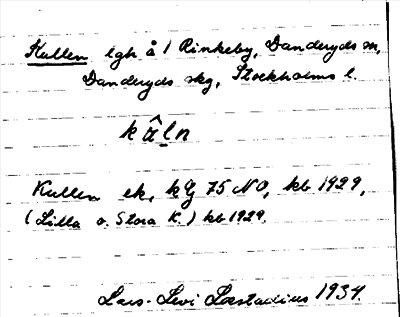 Kullen lgh å 1 Rinkeby, Danderyds sn,
Danderyds skg, Stockholms l.
kâln
Kullen ek, kG 75 NO, kb 1929,
(Lilla o. Stora K.) kb 1929.
Lars-Levi Læstadius 1934.